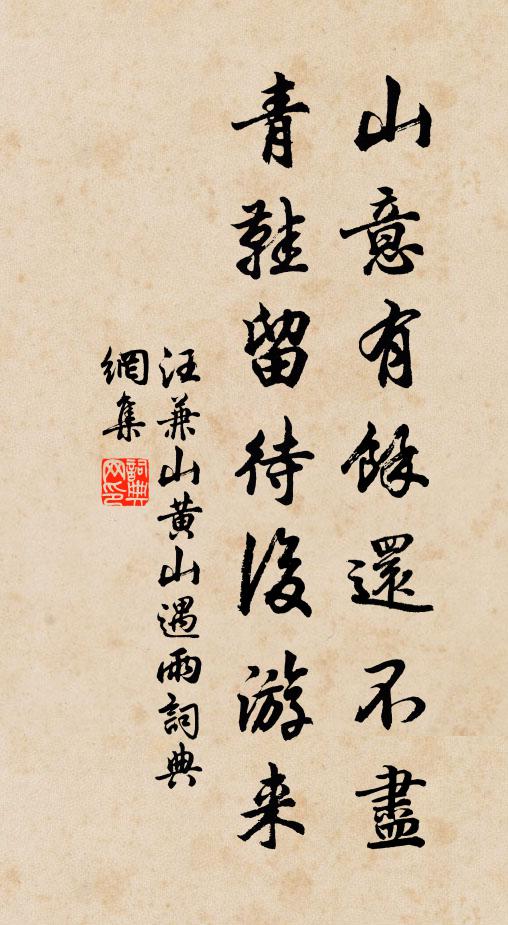 山意有餘還不盡
青鞋留待後游来
汪兼山黄山遇雨詞典
網集
詞典网印